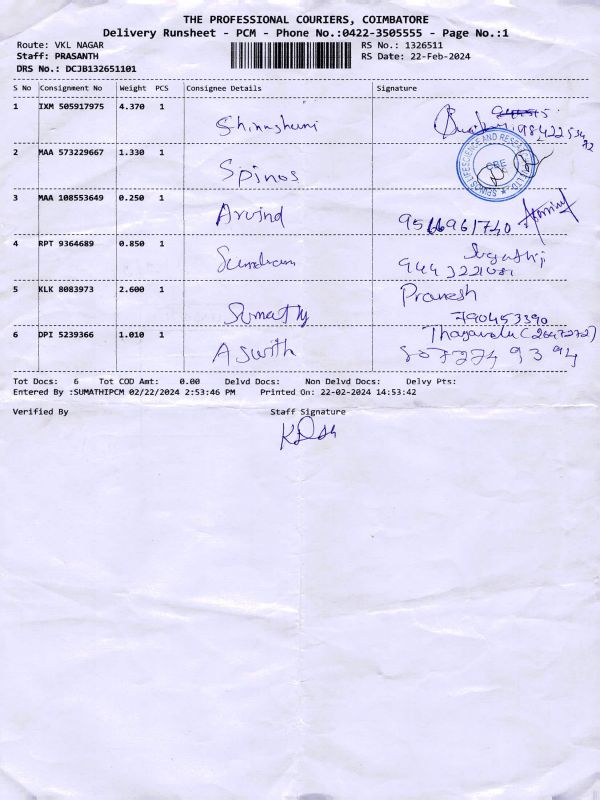 THE PROFESSIONAL COURIERS, COIMBATORE
Delivery Runsheet - PCM - Phone No.:0422-3505555 - Page No.:1
Route: VKL NAGAR RS No.: 1326511
Staff: PRASANTH RS Date: 22-Feb-2024
DRS No.: DCJB132651101
S No Consignment No Weight PCS Consignee Details Signature
1 IXM 505917975 4.370 1
2 MAA 573229667 1.330 1 Spinos
CBE
3 MAA 108553649 0.250 1 Arvind 9566961740
4 RPT 9364689 0.850 1 Sundram
5 KLK 8083973 2.600 1 Sumathy Pranesh
790453390
6 DPI 5239366 1.010 1 Aswith
8072749394
Tot Docs: 6 Tot COD Amt: 0.00 Delvd Docs: Non Delvd Docs: Delvy Pts:
Entered By :SUMATHIPCM 02/22/2024 2:53:46 PM Printed On: 22-02-2024 14:53:42
Verified By Staff Signature